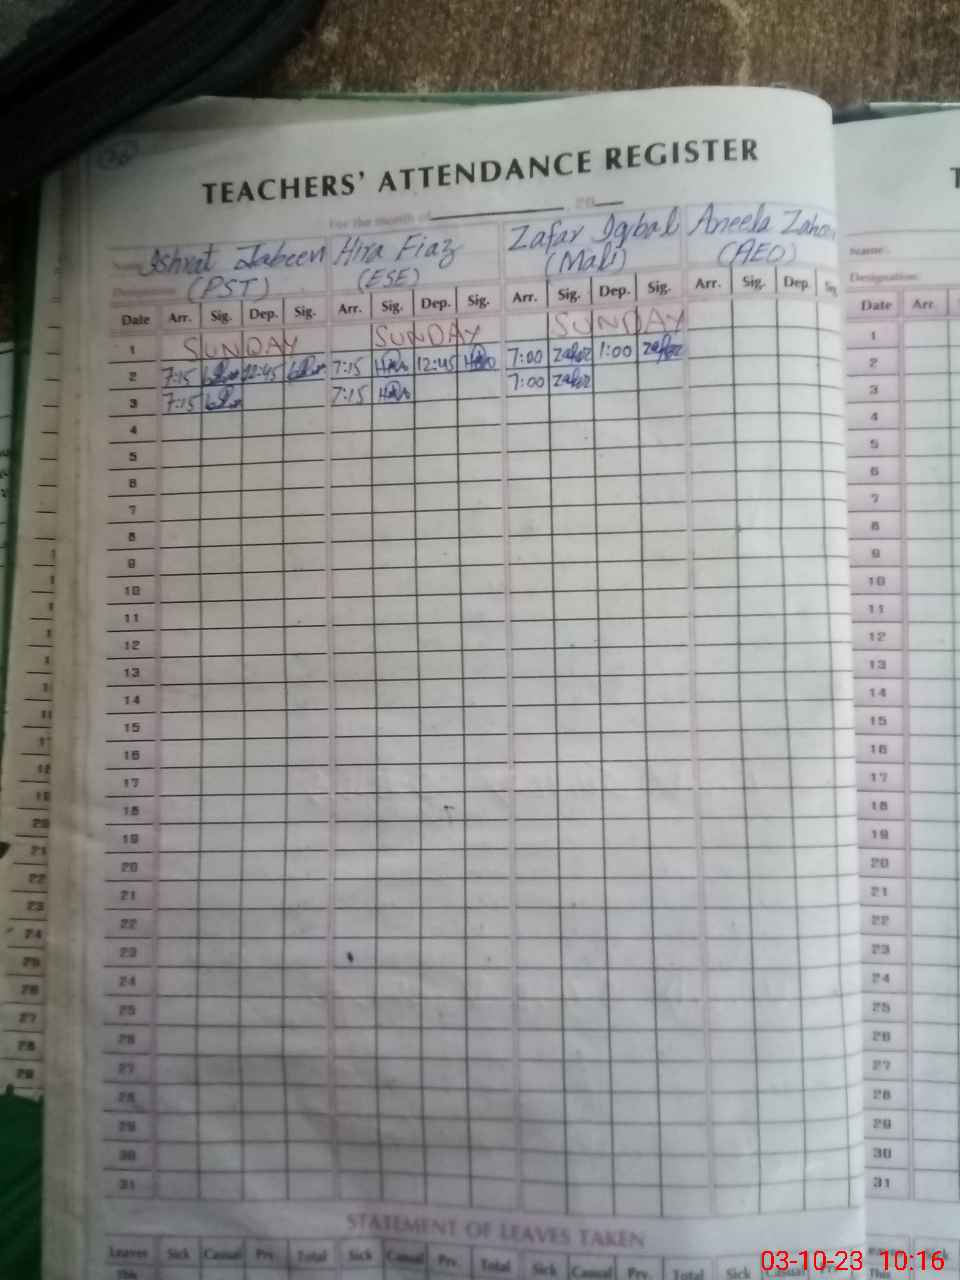 TEACHERS' ATTENDANCE REGISTER
For the month of 20
Ishrat Jabeen Hira Fiaz Zafar Iqbal Aneela Zahoor
(PST) (ESE) (Mali) (AEO)
Name:
Designation:
Date Arr. Sig. Dep. Sig. Arr. Sig. Dep. Sig. Arr. Sig. Dep. Sig. Arr. Sig. Dep. Sig
Date Arr.
1 SUNDAY SUNDAY SUNDAY 1
2 7:15 12:45 7:15 Hira 12:45 Hira 7:00 Zafar 1:00 Zafar 2
3 7:15 7:15 Hira 7:00 Zafar 3
4 4
5 5
6 6
7 7
8 8
9 9
10 10
11 11
12 12
13 13
14 14
15 15
16 16
17 17
18 18
19 19
20 20
21 21
22 22
23 23
24 24
25 25
26 26
27 27
28 28
29 29
30 30
31 31
STATEMENT OF LEAVES TAKEN
Leaves Sick Casual Prv. Total Sick Casual Prv. Total Sick Casual Prv. Total Sick Casual
This This
03-10-23 10:16